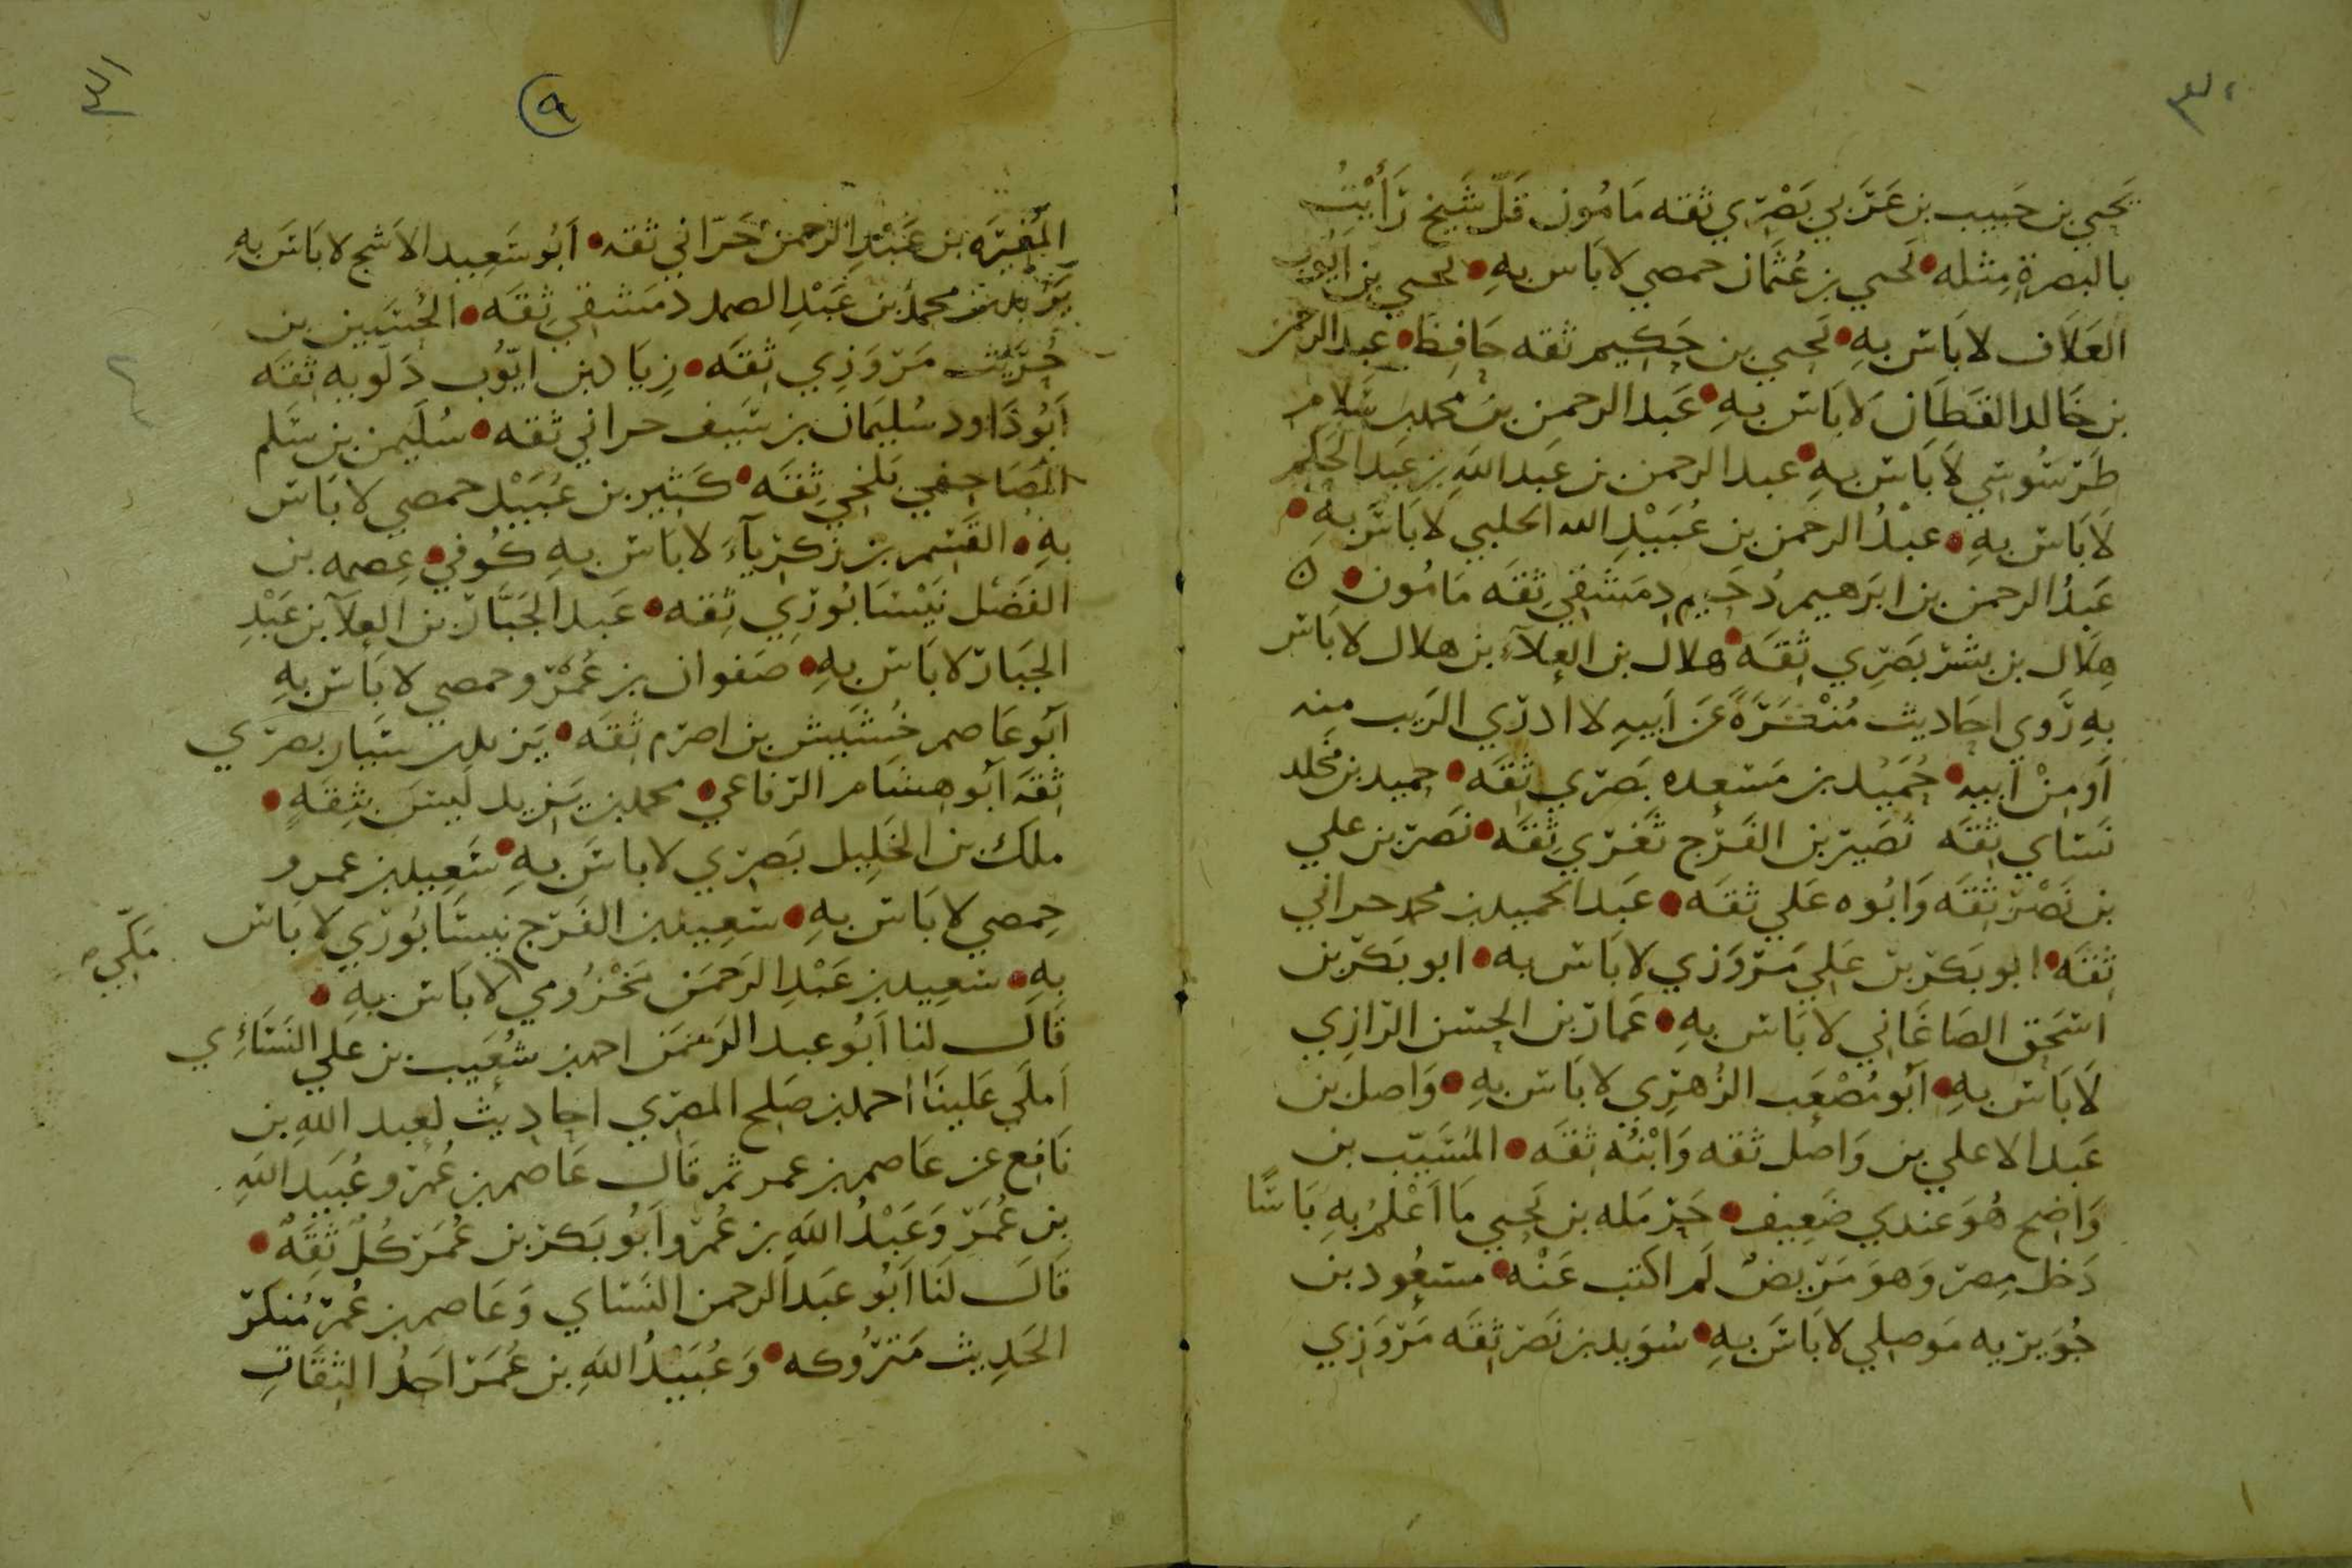 ٣٠
يَحيي بن حَبيب بن عَرَبي بَصْرِي ثقه مَامُون قَلّ شَيخ رَأَيْتُ
بالبصرة مِثله • يَحيي بن عُثمَان حمصي لا بَاس بهِ • يحيي بن ايوب
العَلاَف لا بَاس بهِ • يَحيي بن حَكيم ثقه حَافِظ • عبد الرحمن
بن خَالد القَطَان لاَ بَاس بهِ • عَبد الرحمن بن محمد بن سَلام
طَرسُوسي لاَ بَاس بهِ • عبد الرحمن بن عَبد اللهِ بن عَبد الحَكم
لاَ بَاس بهِ • عبْدُ الرحمن بن عُبَيْدِ الله الحلبي لا بَاسَ بهِ •
عَبدُ الرحمن بن ابرَهيم دُحَيم دِمَشقي ثقَه مَامُون • ن
هِلاَل بن بشر بَصرِي ثِقَه • هلال بن العلآءِ بن هلال لا بَاس
بهِ رَوي احَاديث مُنْكَرَةً عَن اَبيهِ لا ادرَي الرَيب منه
اَو مِنْ اَبيه • حُمَيْد بن مَسعده بَصرَي ثِقَه • حميد بن مخلد
نَسَاي ثِقَه نُصَير بن الفَرَج ثَغرَي ثِقَه • نَصر بن علي
بن نَصْر ثِقَه وَابُوه عَلي ثقَه • عَبد الحميد بن محمد حراني
ثِقَه • ابو بَكر بن عَلي مَروَزي لا بَاس به • ابو بَكر بن
اسحَق الصَاغَاني لا بَاس بهِ • عَمار بن الحسن الرَازِي
لاَ بَاس بهِ • اَبُو مُصْعَب الزُهرِي لا بَاس بهِ • وَاصل بن
عَبد الاعلي بن وَاصل ثقه وَابْنُه ثِقَه • المُسَيّب بن
وَاضح هُوَ عندي ضَعِيف • حَرمَله بن يَحيي مَا اَعْلمُ بهِ بَاسًا
دَخل مِصر وَهوَ مَرَيضٌ لَم اكتب عَنْه • مسعُود بن
جُوَيرَيه مَوصِلي لا بَاسَ بهِ • سُوَيد بن نَصر ثِقَه مَروَزِي
٣١
٩
المُغيرَه بن عَبْدِ الرحمن حَرّاني ثقه • اَبُو سَعِيد الاَشج لا بَاسَ بهِ
يَزيد بن محمد بن عَبْدِ الصمد دمَشقي ثِقَه • الحُسَين بن
حُرَيْث مَروَزِي ثِقَه • زِيَاد بن ايّوُب دَلّويه ثِقَه
اَبُو دَاود سُليمَان بن سَيف حراني ثقه • سُلَيمن بن سَلم
المَصَاحفي بَلخي ثِقَه • كَثِير بن عُبَيْد حمصي لا بَاس
بهِ • القَسم بن زَكرِيآءَ لا بَاس بهِ كُوفي • عِصمه بن
الفَضْل نَيْسَابُورِي ثِقه • عَبد الجَبَّار بن العلآ بن عَبْدِ
الجَبَار لا بَاس بهِ • صَفوان بن عُمَرْو حمصي لا بَاس بهِ
اَبو عَاصم خُشَيش بن اصرَم ثِقَه • يَزيد بن سنَان بصرَي
ثِقَه اَبو هشَام الرَفاعي • محمد بن يَزيد لَيسَ بثِقَةٍ •
ملك بن الخَلِيل بَصرَي لا باسَ بهِ • سَعِيد بن عمرو
حِمصي لا بَاس بهِ • سعِيد بن الفَرَج نيسَابُورَي لا بَاس
بهِ • سَعِيد بن عَبْدِ الرَحمَن مَخْزُومي لا بَاس بهِ •
مَكّي صح
قَالَ لنا اَبُو عبد الرَحمَن احمد بن شُعَيب بن عَلي النَسَائِي
اَملَي عَلينَا احمد بن صَلح المصرَي احادِيث لعبد اللهِ بن
نَافِع عن عَاصم بن عمر ثم قَال عَاصم بن عُمرَ وعُبَيد اللهِ
بن عُمَرَ وَعَبْدُ اللهِ بن عُمرَ واَبُو بَكر بن عُمَر كُلٌ ثِقَةٌ •
قَالَ لَنَا اَبُو عَبد الرحمن النَسَاي وَعَاصم بن عُمرَ مُنكرَ
الحَدِيث مَترُوكه • وَعُبَيْدُ اللهِ بن عُمَرَ احَدُ الثِقَاتِ